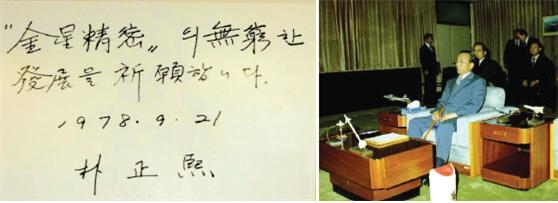 "金星精密" 의 無窮한
發展을 祈願합니다.
1978. 9. 21
朴正熙